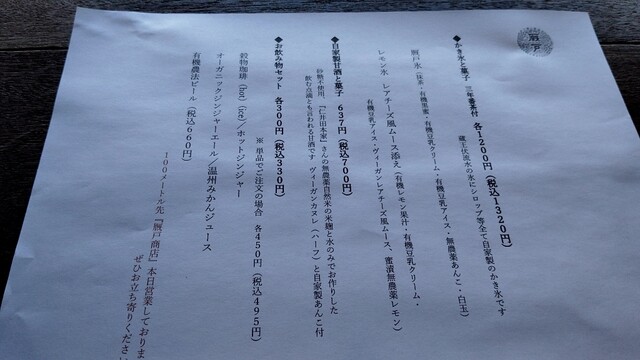 ◆かき氷と菓子 三年番茶付 各1200円（税込1320円）
蔵王伏流水の氷にシロップ等全て自家製のかき氷です
厩戸氷（抹茶・有機黒蜜・有機豆乳クリーム・有機豆乳アイス・無農薬あんこ・白玉）
レモン氷 レアチーズ風ムース添え（有機レモン果汁・有機豆乳クリーム・
有機豆乳アイス・ヴィーガンレアチーズ風ムース、蜜漬無農薬レモン）
◆自家製甘酒と菓子 637円（税込700円）
砂糖不使用、『仁井田本家』さんの無農薬自然米の米麹と水のみでお作りした
飲む点滴とも言われる甘酒です ヴィーガンカヌレ（ハーフ）と自家製あんこ付
◆お飲み物セット 各300円（税込330円）
※ 単品でご注文の場合 各450円（税込495円）
穀物珈琲（hot）（ice）／ホットジンジャー
オーガニックジンジャーエール／温州みかんジュース
有機農法ビール（税込660円）
100メートル先『厩戸商店』本日営業しておりま
ぜひお立ち寄りくださ